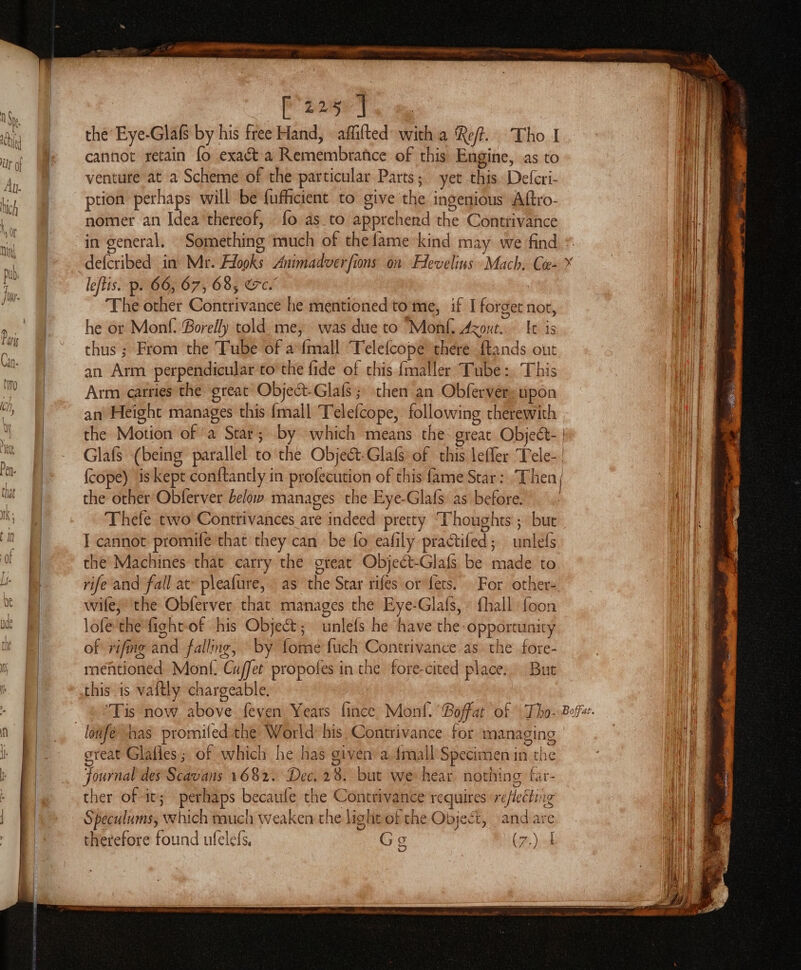 [ 225 ]
the Eye-Glaſs by his free Hand, aſſiſted with a Reſt. Tho I
cannot retain ſo exact a Remembrance of this Engine, as to
venture at a Scheme of the particular Parts; yet this Deſcri-
ption perhaps will be ſufficient to give the ingenious Aſtro-
nomer an Idea thereof, ſo as to apprehend the Contrivance
in general. Something much of the ſame kind may we find
deſcribed in Mr. Hooks Animadverſions on Hevelius Mach. Cæ-
leſtis. p. 66, 67, 68, &c.
The other Contrivance he mentioned to me, if I forget not,
he or Monſ. Borelly told me, was due to Monſ. Azout. It is
thus; From the Tube of a ſmall Teleſcope there ſtands out
an Arm perpendicular to the ſide of this ſmaller Tube: This
Arm carries the great Object-Glaſs; then an Obſerver upon
an Height manages this ſmall Teleſcope, following therewith
the Motion of a Star; by which means the great Object-
Glaſs (being parallel to the Object-Glaſs of this leſſer Tele-
ſcope) is kept conſtantly in proſecution of this ſame Star: Then
the other Obſerver below manages the Eye-Glaſs as before.
Theſe two Contrivances are indeed pretty Thoughts; but
I cannot promiſe that they can be ſo eaſily practiſed; unleſs
the Machines that carry the great Object-Glaſs be made to
riſe and fall at pleaſure, as the Star riſes or ſets. For other-
wiſe, the Obſerver that manages the Eye-Glaſs, ſhall ſoon
loſe the ſight of his Object; unleſs he have the opportunity
of riſing and falling, by ſome ſuch Contrivance as the fore-
mentioned Monſ. Cuſſet propoſes in the fore-cited place. But
this is vaſtly chargeable.
'Tis now above ſeven Years ſince Monſ. Boffat of Tho- Boffat.
louſe has promiſed the World his Contrivance for managing
great Glaſſes; of which he has given a ſmall Specimen in the
Journal des Scavans 1682. Dec. 28. but we hear nothing far-
ther of it; perhaps becauſe the Contrivance requires reflecting
Speculums, which much weaken the light of the Object, and are
therefore found uſeleſs. G g (7.) I